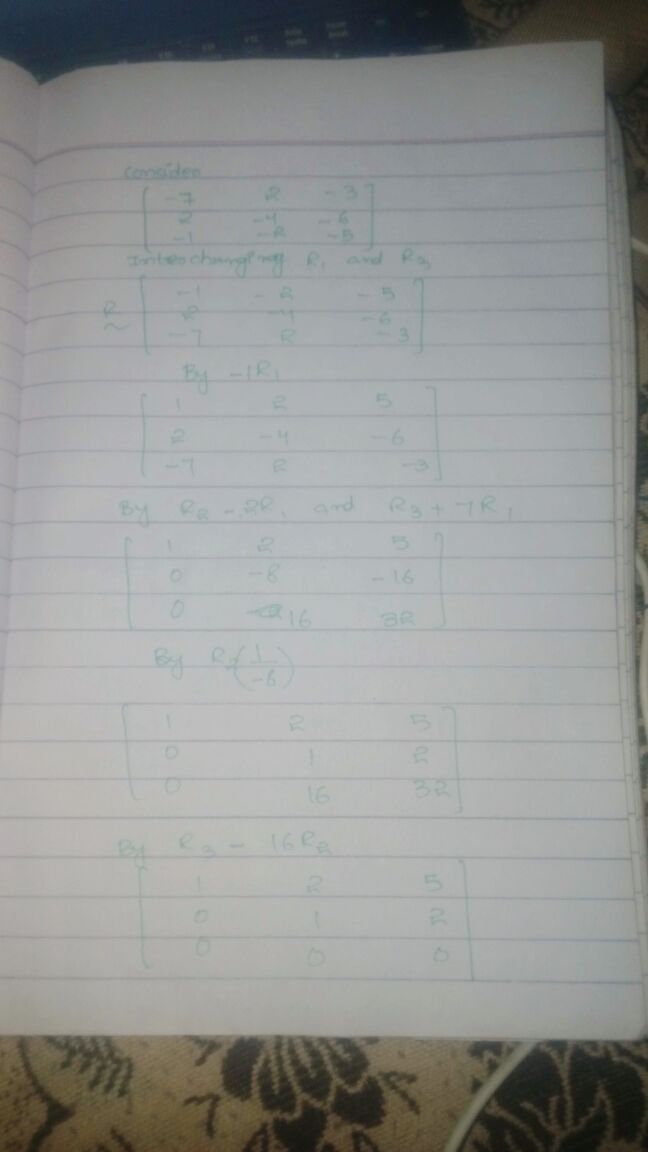 Consider
-7 2 -3
2 -4 -6
-1 -2 -5
Interchanging R1 and R3
R ~
-1 -2 -5
2 -4 -6
-7 2 -3
By -1R1
1 2 5
2 -4 -6
-7 2 -3
By R2 - 2R1 and R3 + 7R1
1 2 5
0 -8 -16
0 16 32
By R2(1/-8)
1 2 5
0 1 2
0 16 32
By R3 - 16R2
1 2 5
0 1 2
0 0 0